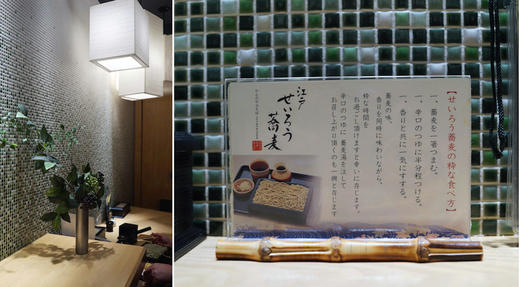 【せいろう蕎麦の粋な食べ方】
一、蕎麦を一箸つまむ。
一、辛口のつゆに半分程つける。
一、香りと共に一気にすする。
蕎麦の味、
香りを同時に味わいながら、
粋な時間を
お過ごし頂けますと幸いに存じます。
辛口のつゆに蕎麦湯を注して
お召し上がり頂くのも一興と存じます
江戸
せいろう
蕎麦